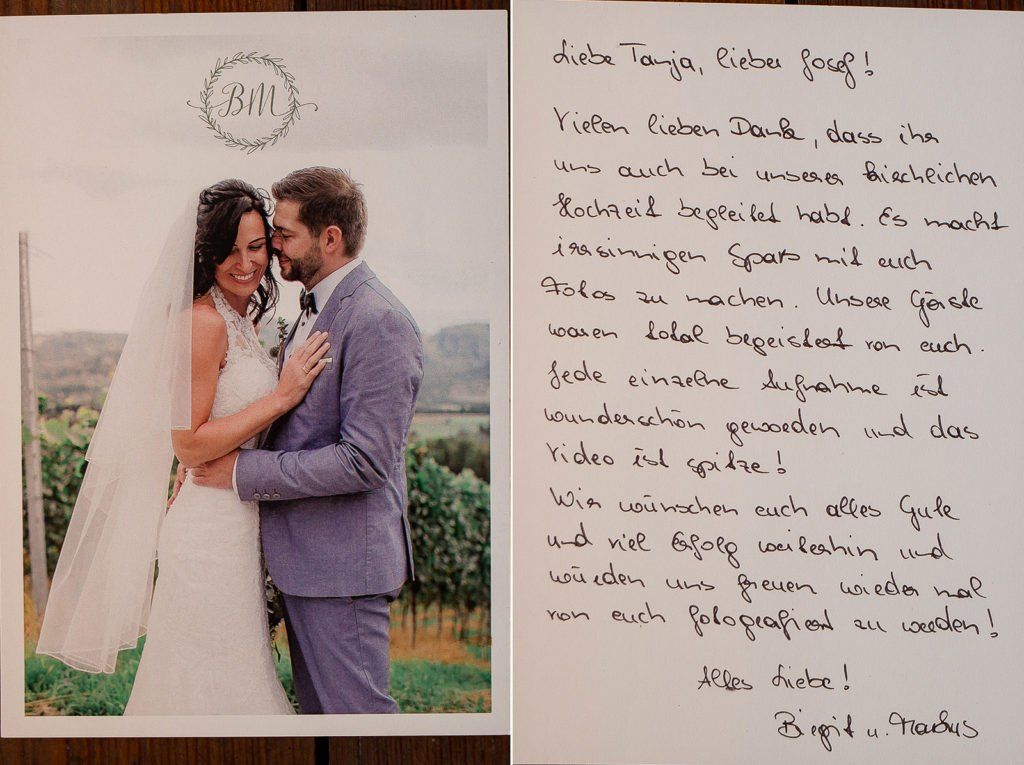 BM
Liebe Tanja, lieber Josef!
Vielen lieben Dank, dass ihr
uns auch bei unserer kirchlichen
Hochzeit begleitet habt. Es macht
irrsinnigen Spaß mit euch
Fotos zu machen. Unsere Gäste
waren total begeistert von euch.
Jede einzelne Aufnahme ist
wunderschön geworden und das
Video ist spitze!
Wir wünschen euch alles Gute
und viel Erfolg weiterhin und
würden uns freuen wieder mal
von euch fotografiert zu werden!
Alles Liebe!
Birgit u. Markus